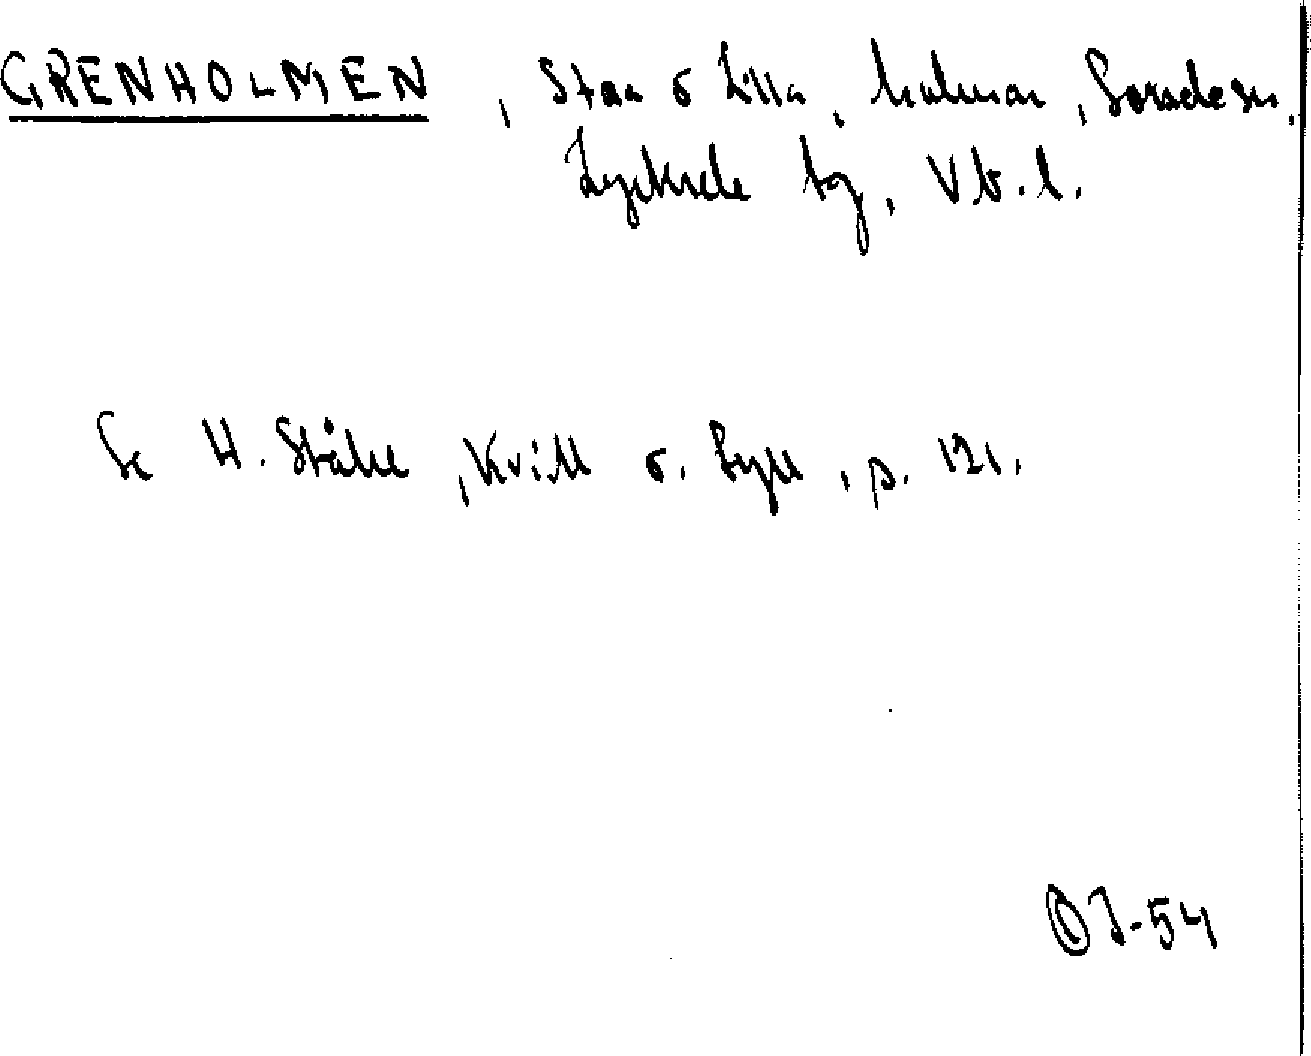 GRENHOLMEN, Stora o Lilla, holmar, Sorsele sn,
Lycksele tg, Vb. l.
Se H. Ståhle, Kvill o. Syll, p. 121.
OJ-54